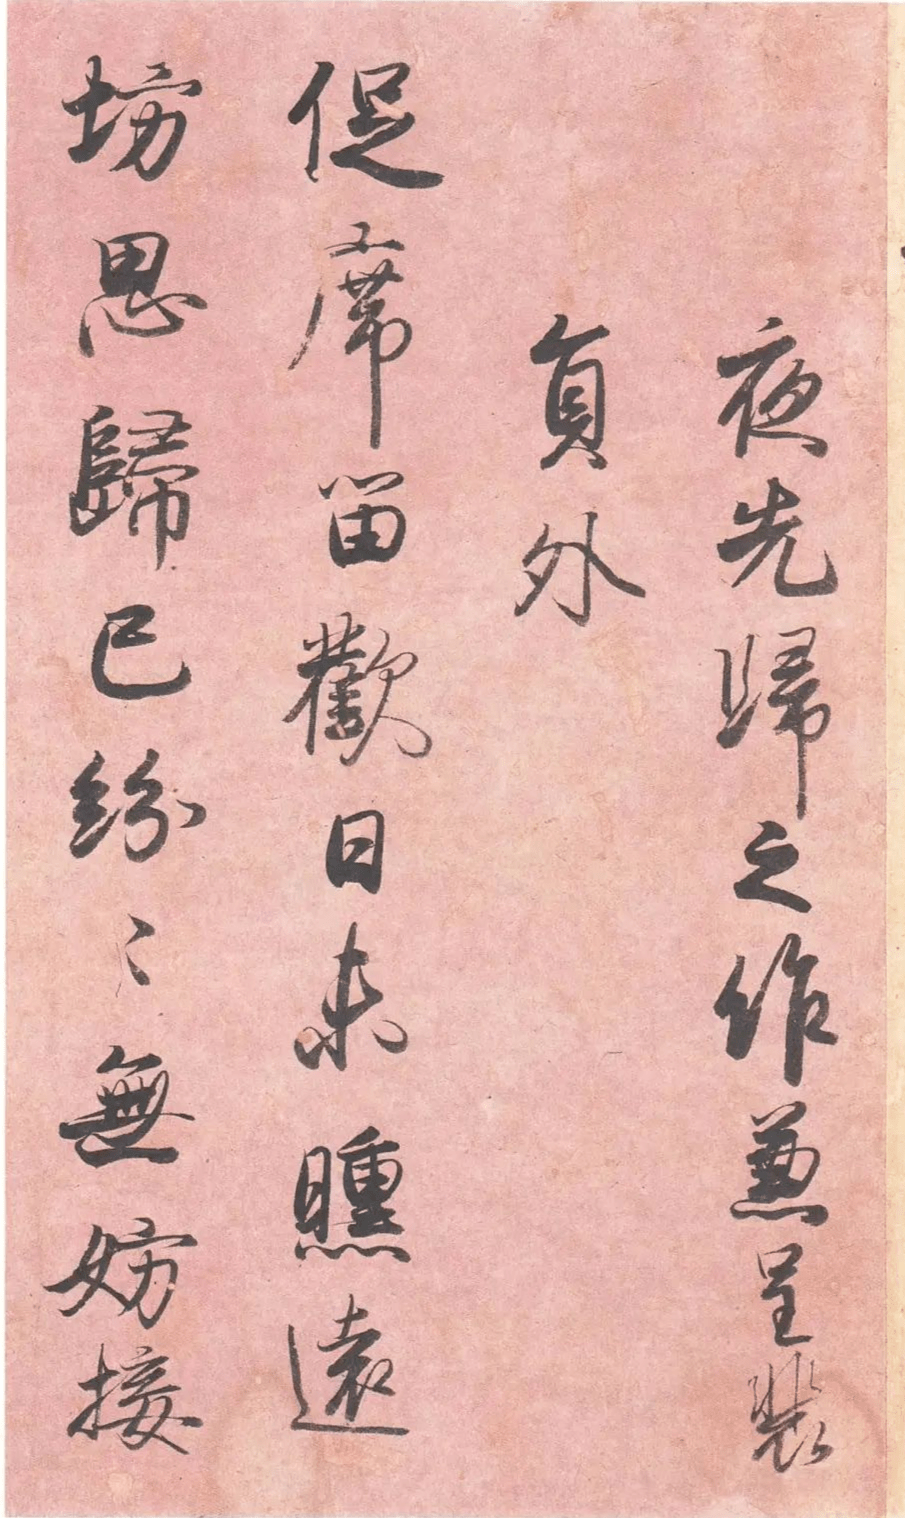 夜先歸之作兼呈裴
負外
促席留歡日未曛遠
坊思歸已紛〻無妨接